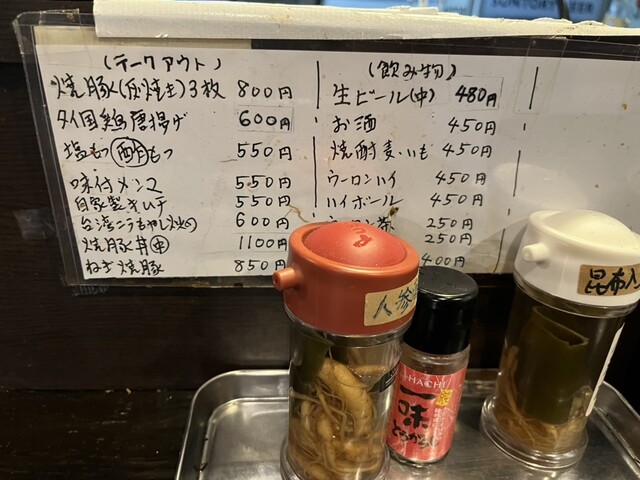 SUNTORY BEER
(テークアウト)
焼豚(灰焼き)3枚 800円
タイ国鶏唐揚げ 600円
塩もつ もつ 550円
味付メンマ 550円
自家製キムチ 550円
台湾 もやし 600円
焼豚丼 1100円
ねぎ焼豚 850
(飲み物)
生ビール(中) 480円
お酒 450円
焼酎麦・いも 450円
ウーロンハイ 450円
ハイボール 450円
茶 250円
250円
400円
人参
昆布入
HACHI
一味
とうがらし